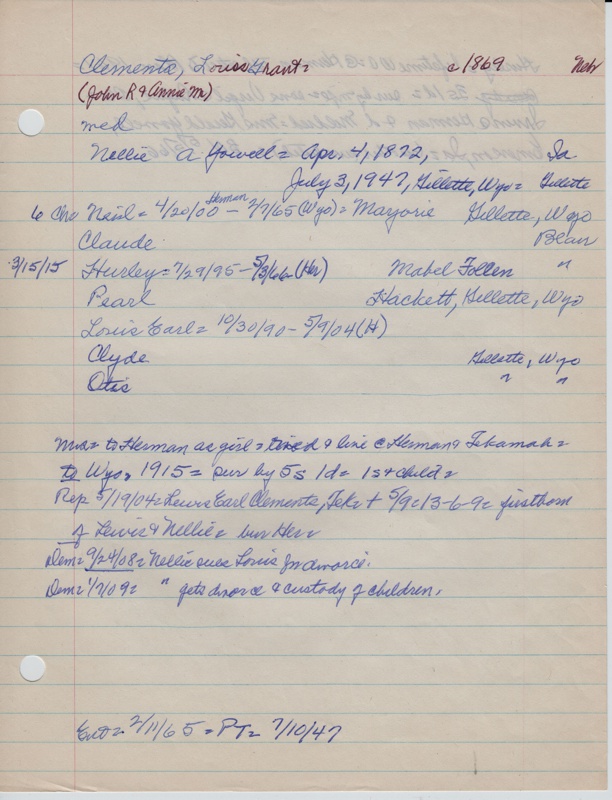 Clements, Louis Grant = c 1869 Nebr
(John R & Annie M)
med
Nellie A Yowell = Apr. 4, 1872, Ia
July 3, 1947, Gillette, Wyo = Gillette
6 Chn Neil = 4/20/00 Herman - 2/7/65 (Wyo) = Marjorie Gillette, Wyo
Claude Blair
3/15/15 Hurley = 7/29/95 - (Her) Mabel Follen "
Pearl Hackett, Gillette, Wyo
Louis Earl = 10/30/90 - 5/9/04 (H)
Clyde Gillette, Wyo
Otis " "
to Herman as girl = & live c Herman & Tekamah =
to Wyo, 1915 = sur by 5s 1d = 1s + child =
Rep 5/19/04 = Lewis Earl Clements, Tek = + 5/9 = 13-6-9 = firstborn
of Lewis & Nellie = bur Her =
Dem = 9/24/08 = Nellie sues Louis for divorce.
Dem = 1/7/09 = " gets divorce & custody of children.
Ent = 2/11/65 = PT = 7/10/47